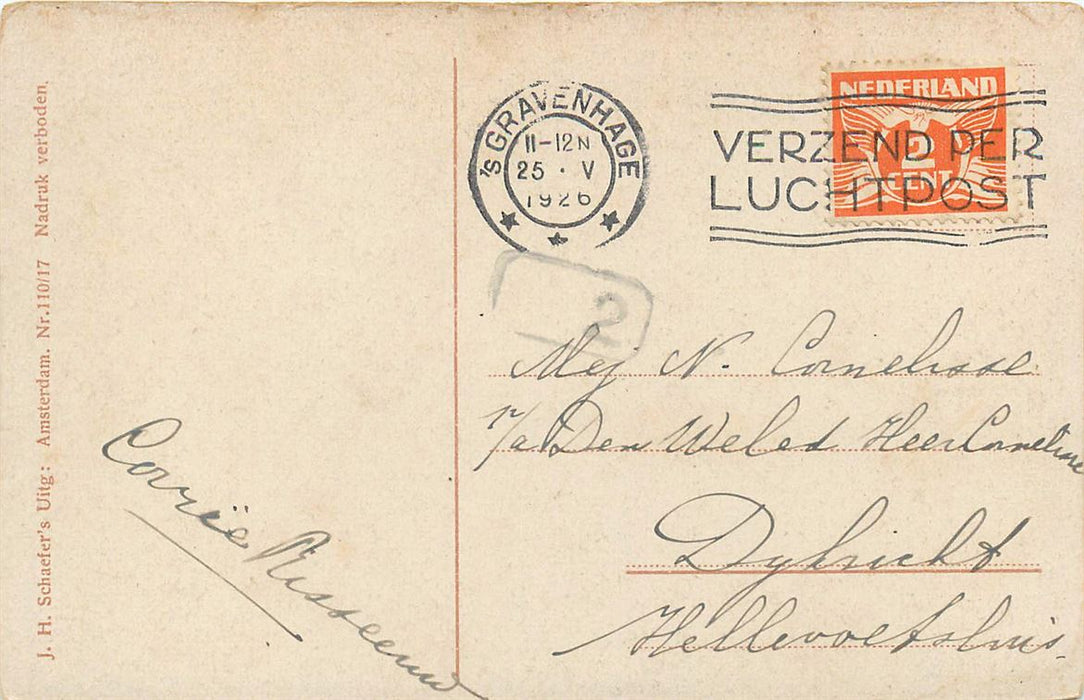 J. H. Schaefer's Uitg: Amsterdam. Nr. 110/17 Nadruk verboden.
'S GRAVENHAGE
11-12N
25 · V
1926
NEDERLAND
2
CENT
VERZEND PER
LUCHTPOST
2
Mej N. Cornelisse
p/a Den Weled Heer Cornelisse
Hellevoetsluis.
Corrië